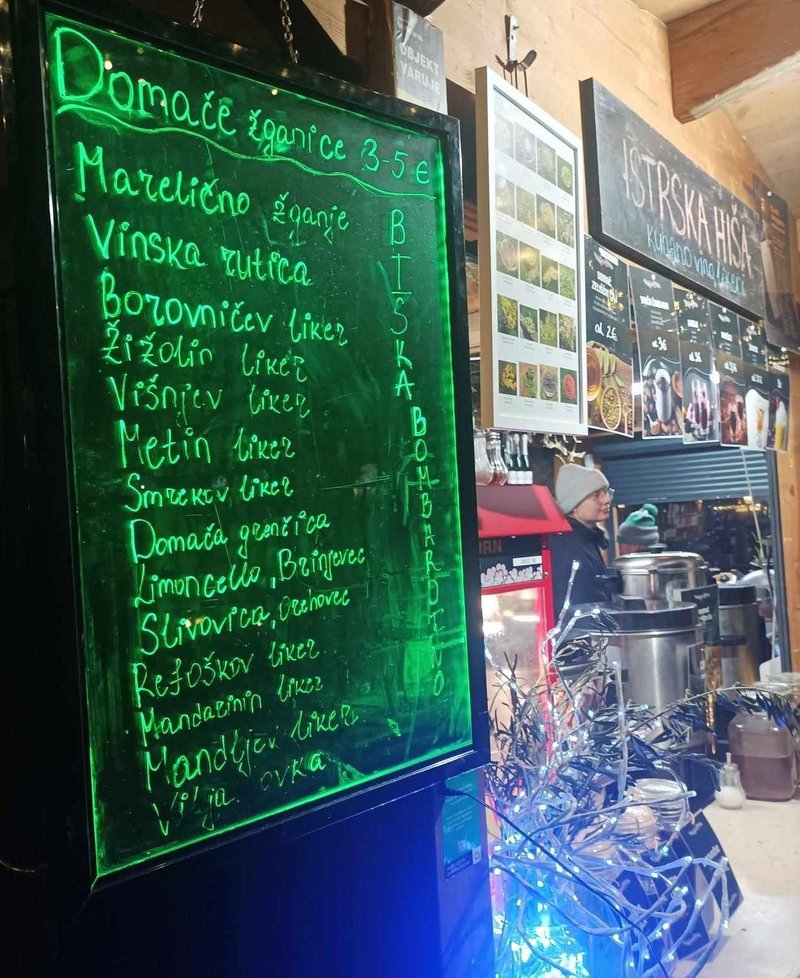 Domače žganice 3-5 €
Marelično žganje
Vinska rutica
Borovničev liker
Žižolin liker
Višnjev liker
Metin liker
Smrekov liker
Domača grenčica
Limoncello, Brinjevec
Slivovica, Orehovec
Refoškov liker
Mandarinin liker
Mandljev liker
BISKA BOMBARDINO
OBJEKT
VARUJE
ISTRSKA HIŠA
kuhano vino, likerji
od 2€